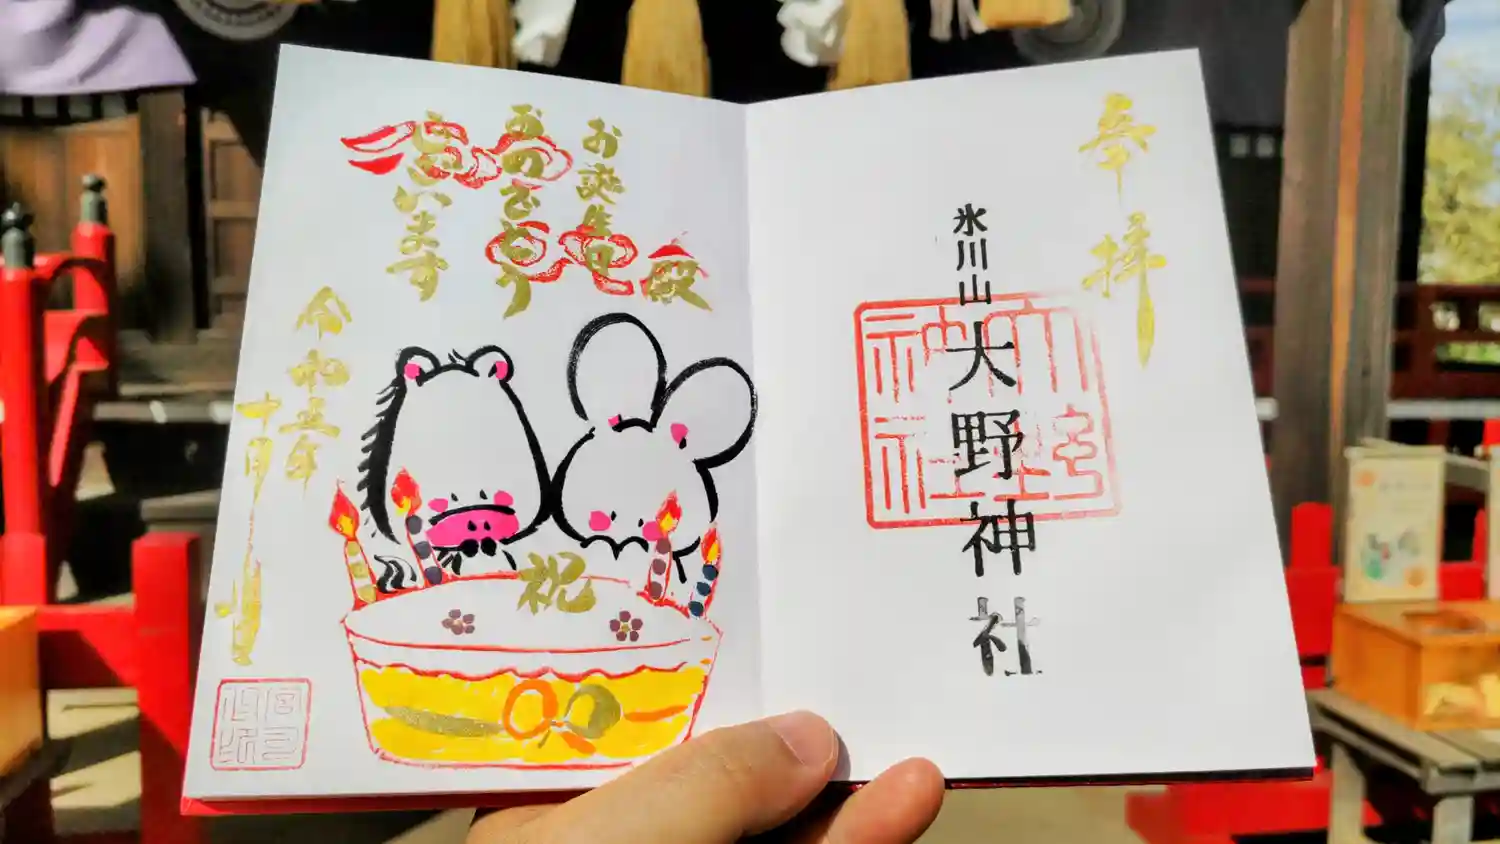 奉拝
氷川山大野神社
大野
神社
お誕生日
殿
おめでとう
ございます
祝
令和五年
十月